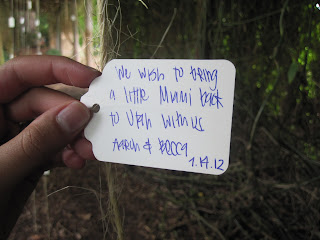 We wish to bring
a little Mumi back
to Utah with us
Aaron & Becca
1.14.12